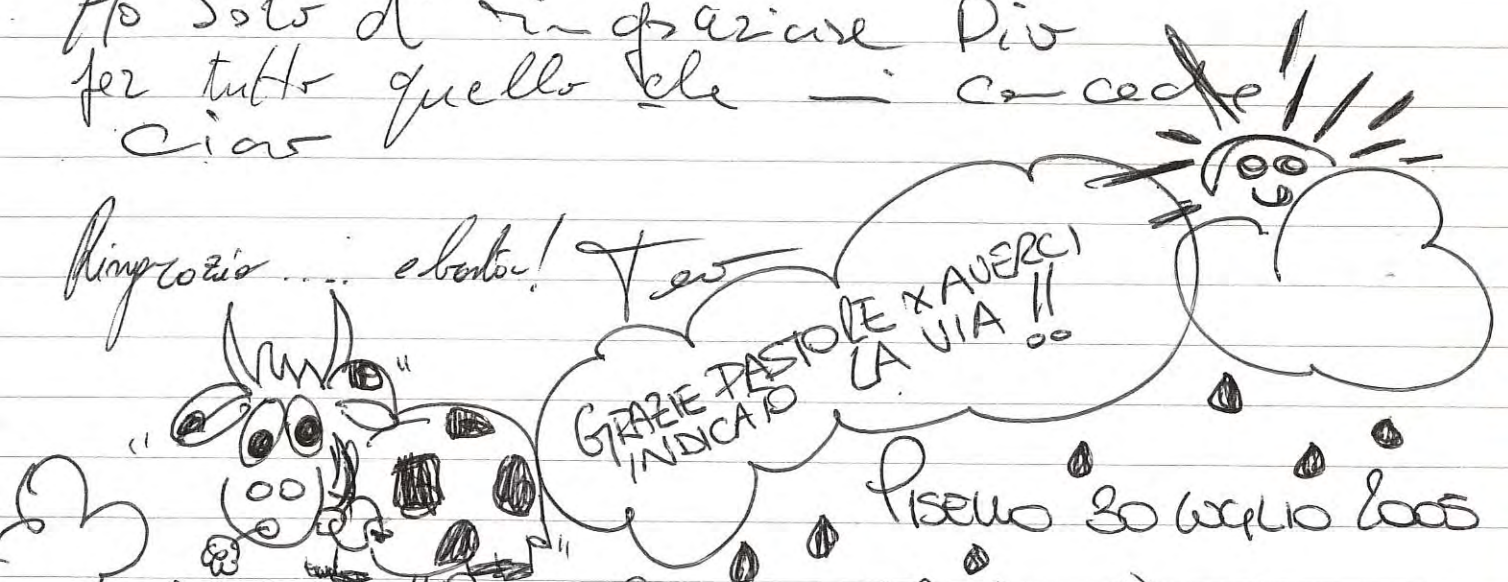 Ho solo d ringraziare Dio
per tutto quello che mi concede!
Ciao
Ringrazio.... e basta! Teo
GRAZIE PASTORE X AVERCI
INDICATO LA VIA !!
PISELLO 30 LUGLIO 2005